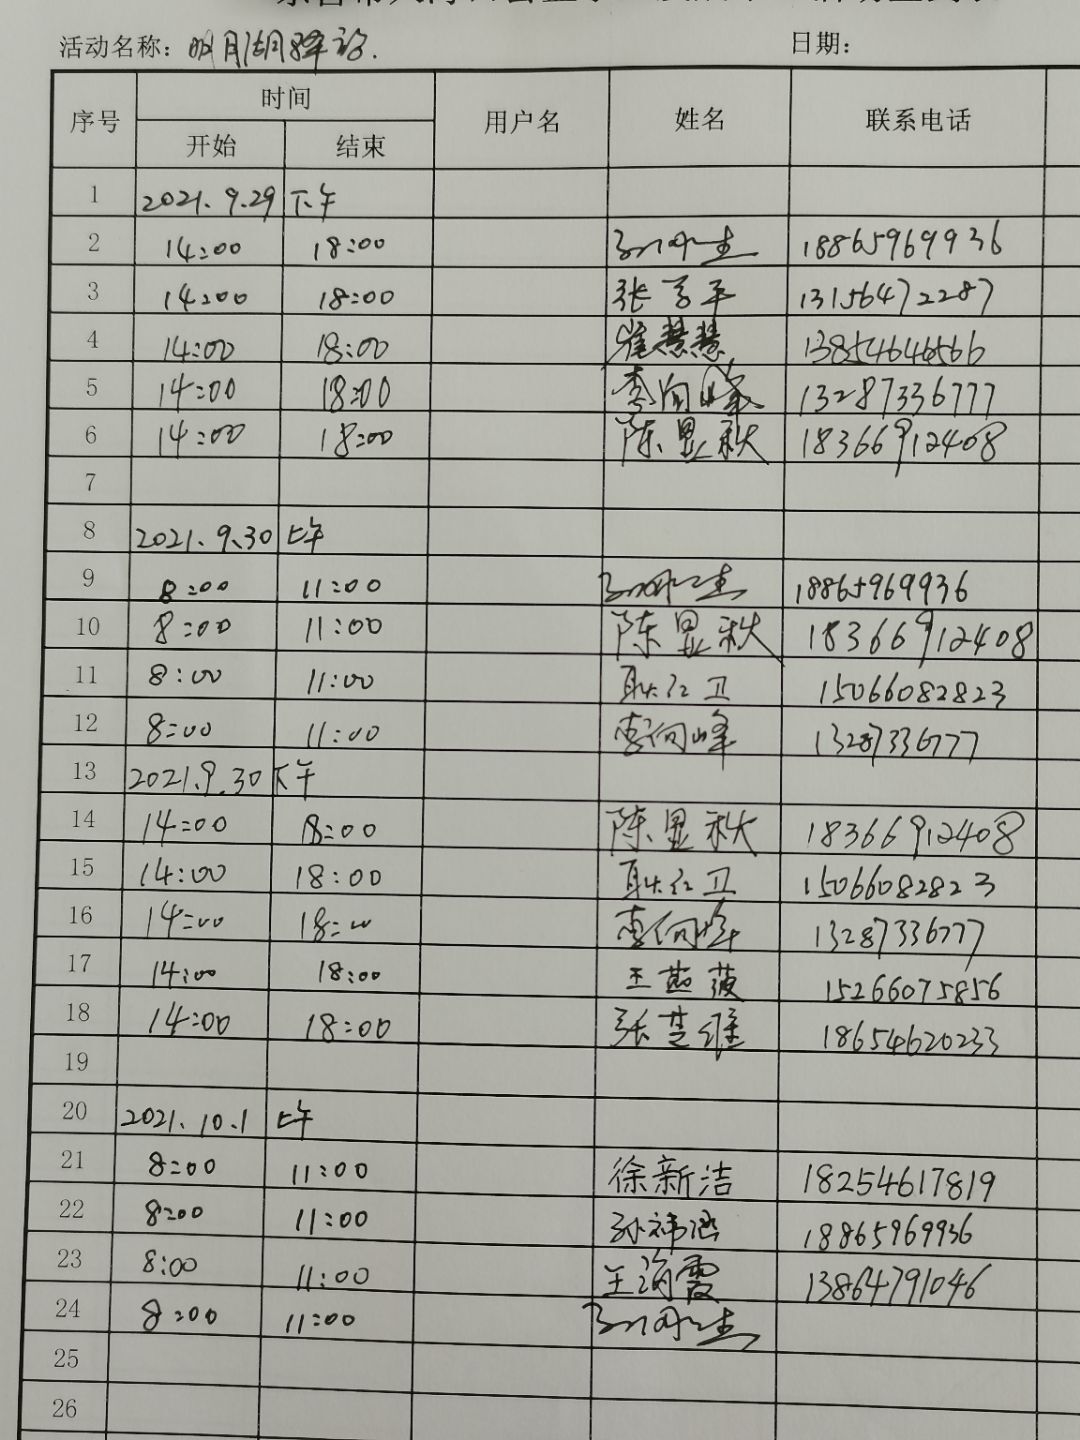 活动名称：明月湖驿站.
日期：
序号 时间 用户名 姓名 联系电话
开始 结束
1 2021.9.29 下午
2 14:00 18:00 18865969936
3 14:00 18:00 张 平 13156472287
4 14:00 18:00 崔慧慧 13854646566
5 14:00 18:00 李向峰 13287336777
6 14:00 18:00 陈显秋 18366912408
7
8 2021.9.30 上午
9 8:00 11:00 18865969936
10 8:00 11:00 陈显秋 18366912408
11 8:00 11:00 耿红卫 15066082823
12 8:00 11:00 李向峰 13287336777
13 2021.9.30 下午
14 14:00 18:00 陈显秋 18366912408
15 14:00 18:00 耿红卫 15066082823
16 14:00 18:00 李向峰 13287336777
17 14:00 18:00 王 15266075856
18 14:00 18:00 张楚维 18654620233
19
20 2021.10.1 上午
21 8:00 11:00 徐新洁 18254617819
22 8:00 11:00 孙祎涵 18865969936
23 8:00 11:00 王海霞 13864791046
24 8:00 11:00
25
26